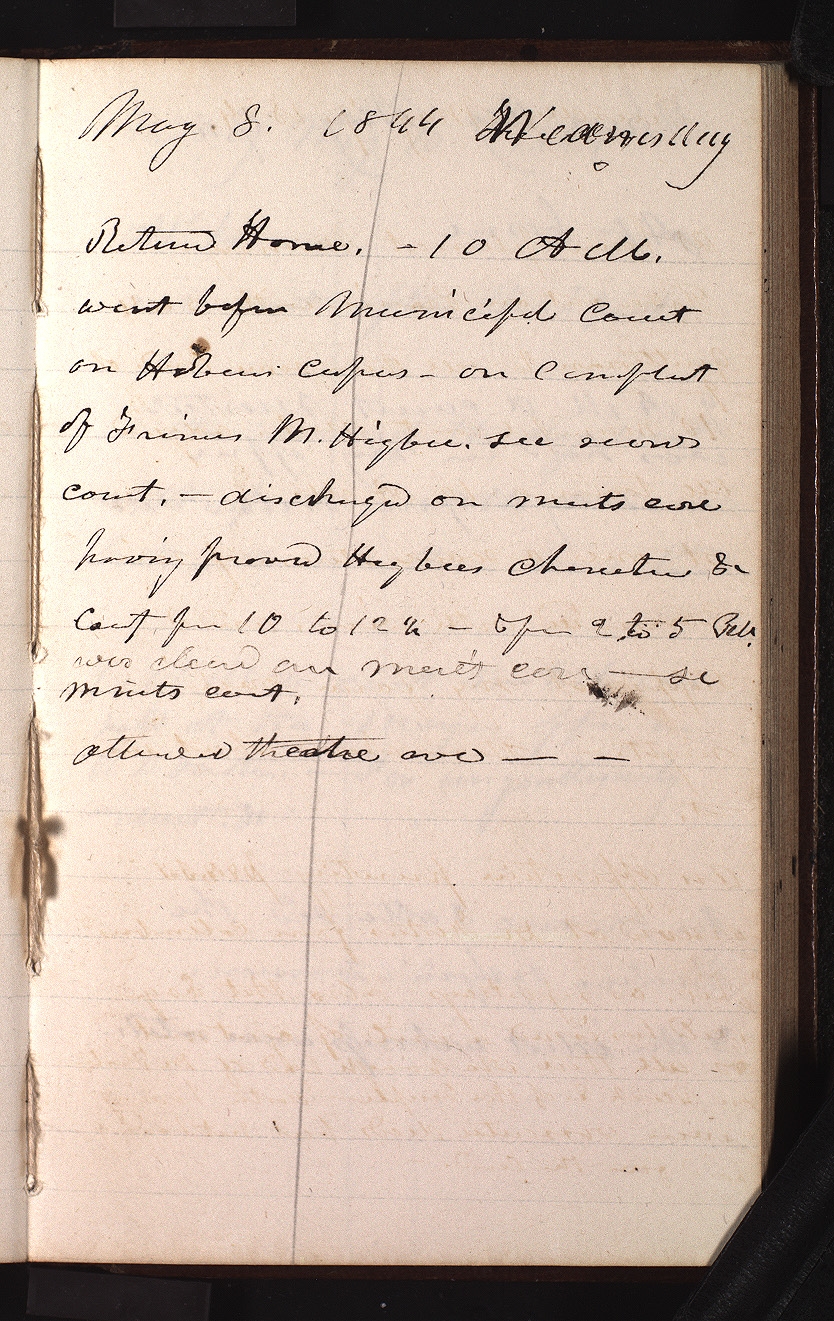 May. 8. 1844 Wednesday
Returnd Home. – 10 A M.
went before Municipal Court
on Habeus Corpus – on Complaint
of Frances M. Higbee. see records
court. – discharged on merits case
having proved Higbees character &
Court from 10 to 12 – & from 2 to 5
was cleard on merits case — see
minits court.
attended theatre eve — –